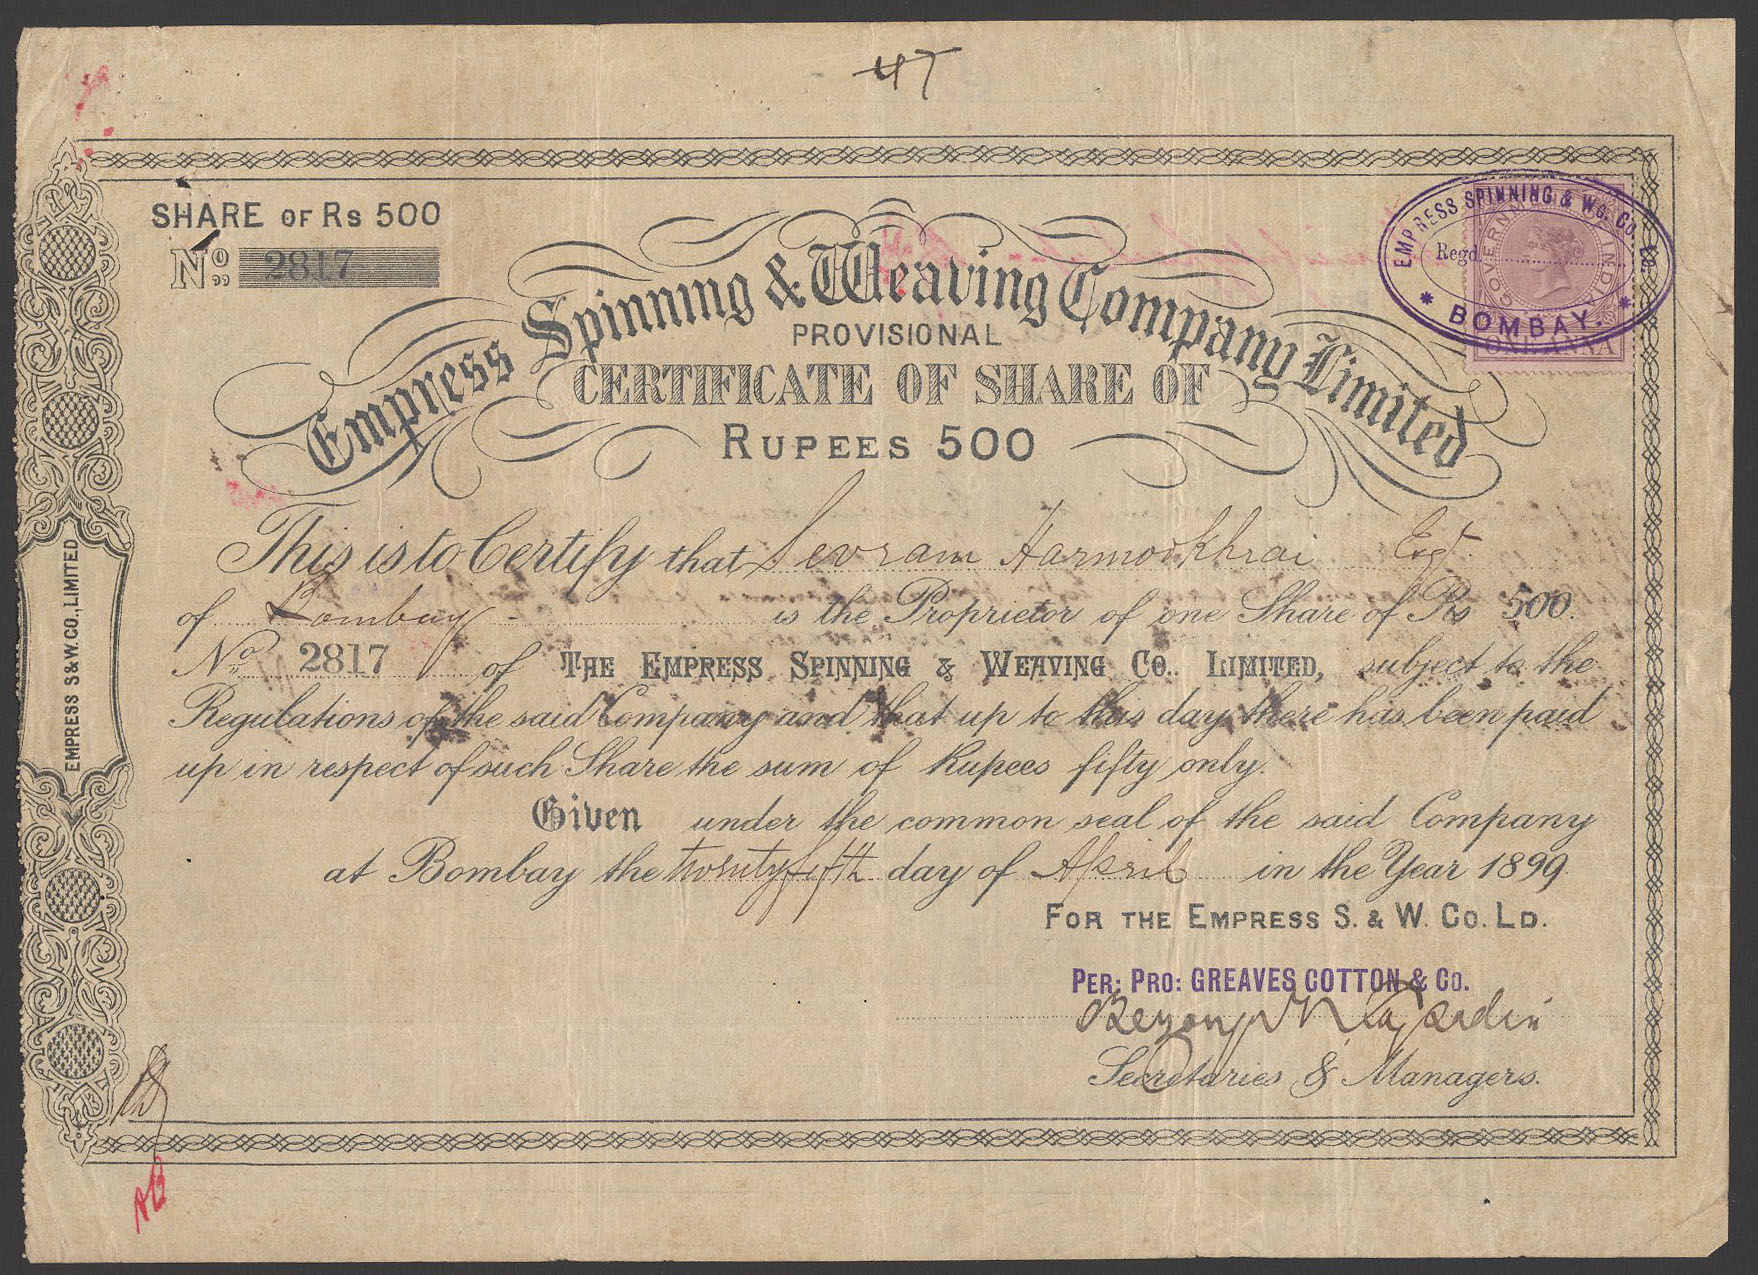 47
SHARE OF RS 500
No 2817
Empress Spinning & Weaving Company Limited
PROVISIONAL
CERTIFICATE OF SHARE OF
RUPEES 500
EMPRESS SPINNING & WG. Co. LD
Regd.
BOMBAY.
GOVERNMENT INDIA
ONE ANNA
This is to Certify that Sevram Harmookhrai Esqr.
of Bombay - is the Proprietor of one Share of Rs 500.
No. 2817 of THE EMPRESS SPINNING & WEAVING CO., LIMITED, subject to the
Regulations of the said Company and that up to this day there has been paid
up in respect of such Share the sum of Rupees fifty only.
Given under the common seal of the said Company
at Bombay the twentyfifth day of April in the Year 1899
FOR THE EMPRESS S. & W. CO. LD.
PER: PRO: GREAVES COTTON & CO.
Secretaries & Managers.
EMPRESS S & W. CO., LIMITED